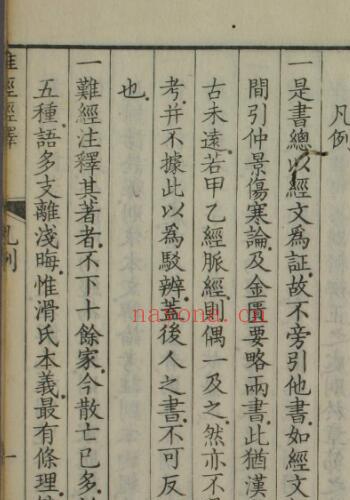 凡例
一是書總以經文為証故不旁引他書如經文
間引仲景傷寒論及金匱要略兩書此猶漢
古未遠若甲乙經脈經則偶一及之然亦不
考并不據此以為駁辨蓋後人之書不可反
也
一難經注釋其著者不下十餘家今散亡已多
五種語多支離淺晦惟滑氏本義最有條理
難經經釋
凡例
一
nayona.cn